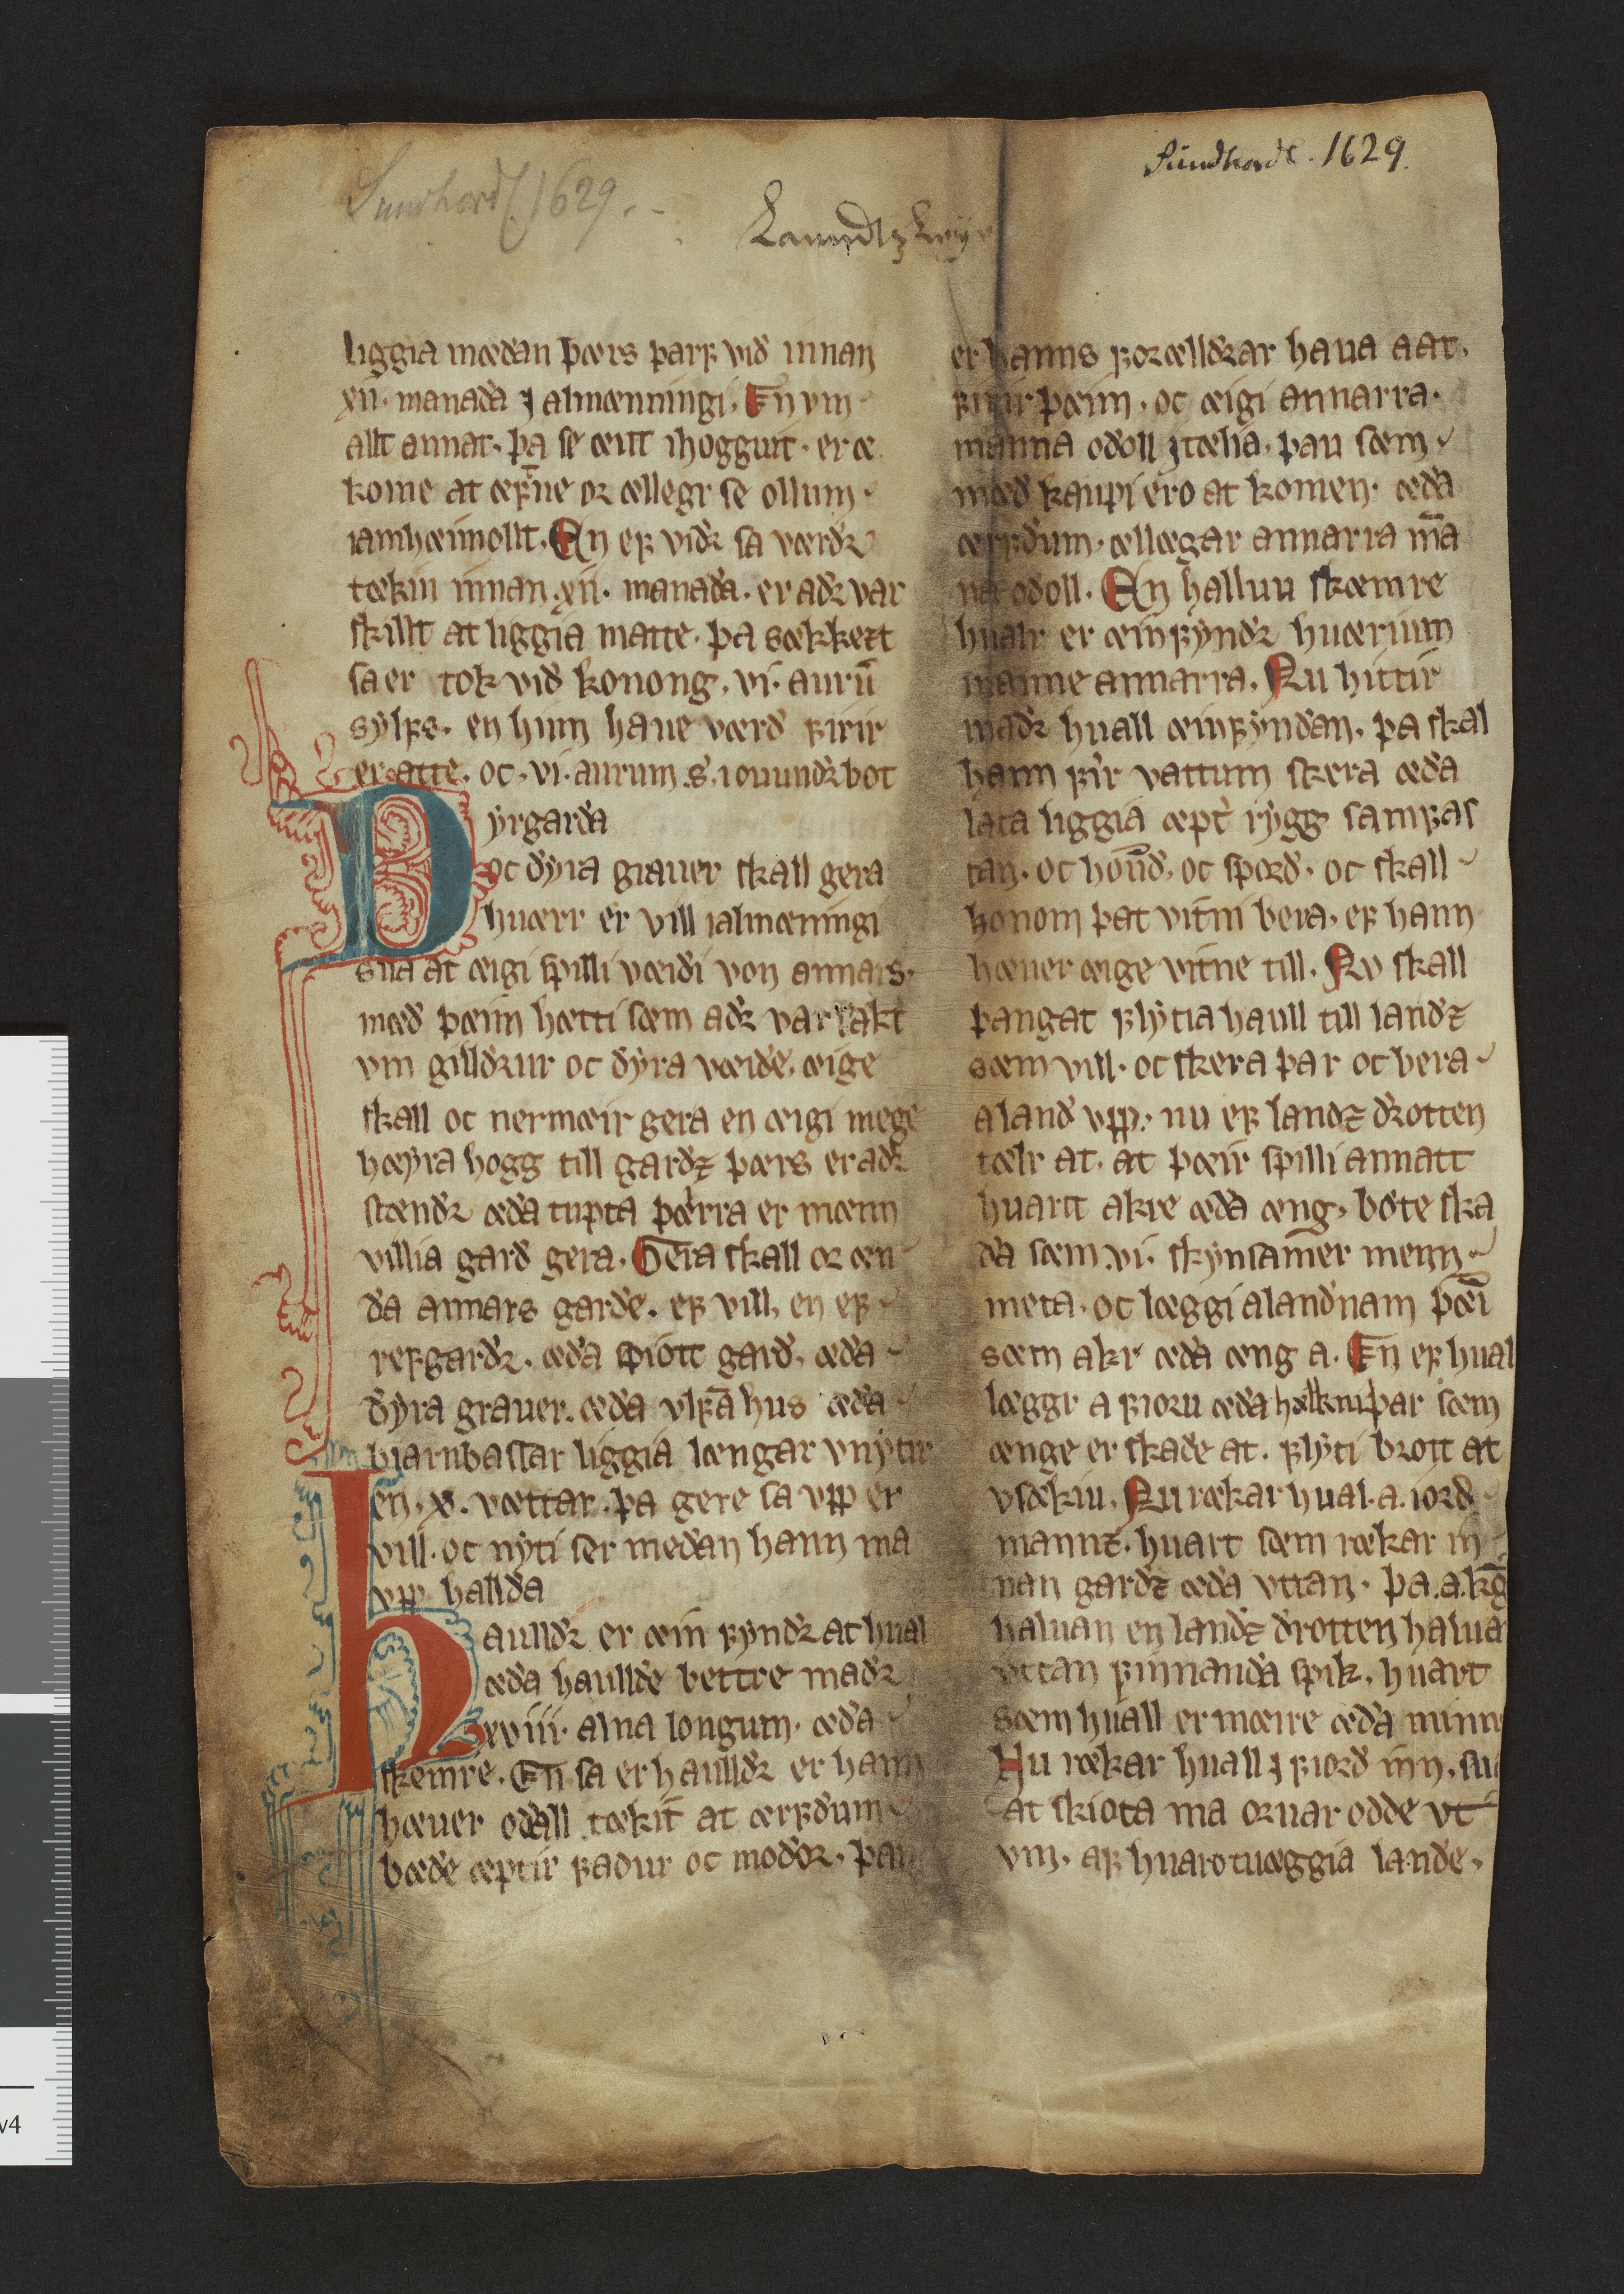 Sundhordl. 1629.
Sundhordl. 1629.
liggia mædan þærs þarf vid innan
xii. manada j almænningi. En vm
allt annat. þa se æitt ihogguit. er æ
kome at æfne or ællegr se ollum
iamhæimollt. En ef vidr sa værdr
tækin innan .xii. manada. er adr var
skillt at liggia matte. þa sækkezt
sa er tok vid konong. vi. aurū
sylfs. en hinn haue værd firir
er atte. oc. vi. aurum .s. iouundr bot
Dyrgarda
oc dyra grauer skall gera
huærr er vill ialmæningi
sua at æigi spilli væidi von annars.
mæd þæim hætti sæm adr var sakt
vm gilldrur oc dyra væide. æige
skall oc nermæir gera en æigi mege
hœyra hogg till gardz þærs er adr
stændr æda tupta þærra er mænn
villia gard gera. Gera skall or æn
da annars garde. ef vill. en ef
refgardr. æda þiott gard. æda
dyra grauer. æda vlfa hus æda
biarnbassar liggia længar vnytir
en. x. vættar. þa gere sa vpp er
vill. oc nyti ser medan hann ma
vpp hallda
haulldr er æin fyndr at hual
æda haullde bettre madr
xviii. alna longum. æda
skemre. En sa er haulldr er hann
hæuer odall tækit at ærfdum
bæde æptir fadur oc modor. þau
er hanns forælldrar haua aat.
firir þæim. oc æigi annarra.
manna odoll j tælia. þau sæm
mæd kaupi ero at komen. æda
ærfdum. ællægar annarra mā
na odoll. En halluu skæmre
hualr er æinfyndr huærium
manne annarra. Nu hittir
madr huall æinfyndan. þa skal
hann fir vattum skera æda
lata liggia æpt rygg samfas
tan. oc houd. oc spord. oc skall
honom þat vitni bera. ef hann
hæuer æige vitne till. Nv skall
þangat flytia haull till landz
sæm vill. oc skera þar oc bera
a land vpp. nu ef landz drotten
tælr at. at þæir spilli annatt
huart akre æda æng. bote ska
da sæm .vi. skynsamer menn
meta. oc læggi a landnam þæī
sæm akr æda æng a. En ef hual
læggr a fioru æda hælkni þar sæm
ænge er skade at. flyti brott at
vsækiu. Nu rækar hual. a. iord
mannz. huart sæm rækar in
nan gardz æda vttan. þa .a. kg
haluan en landz drotten halua
vttan finnanda spik. huart
sæm huall er mæire æda minn
Nu rækar huall j fiord inn. su
at skiota ma oruar odde vt
vm. af huarotuæggia lande.